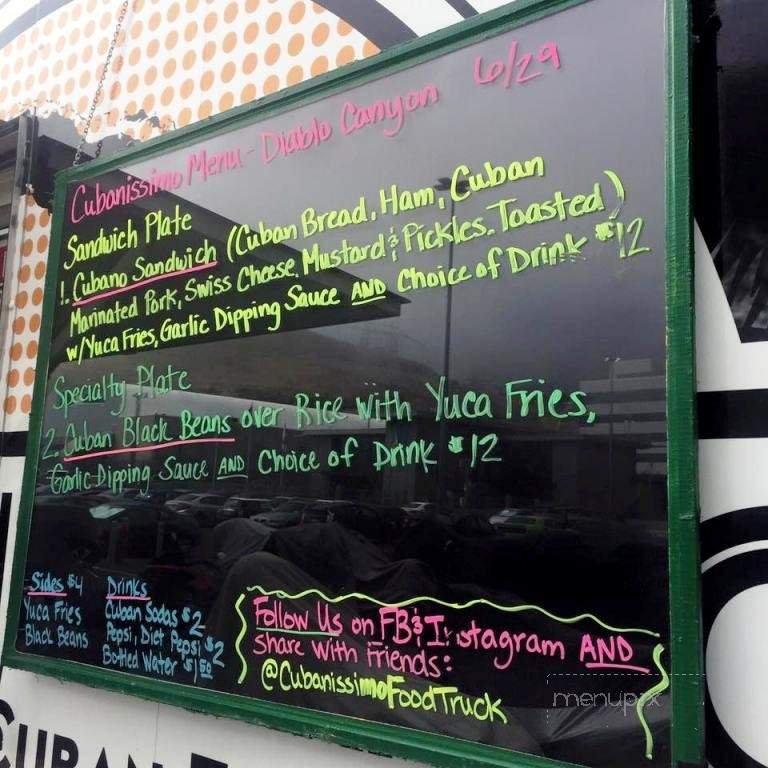 Cubanissimo Menu - Diablo Canyon 6/29
Sandwich Plate
1. Cubano Sandwich (Cuban Bread, Ham, Cuban
Marinated Pork, Swiss Cheese, Mustard & Pickles. Toasted)
w/Yuca Fries, Garlic Dipping Sauce AND Choice of Drink $12
Specialty Plate
2. Cuban Black Beans over Rice with Yuca Fries,
Garlic Dipping Sauce AND Choice of Drink $12
Sides $4
Yuca Fries
Black Beans
Drinks
Cuban Sodas $2
Pepsi, Diet Pepsi $2
Bottled Water $1.50
Follow Us on FB & Instagram AND
Share with Friends:
@CubanissimoFoodTruck
menupix
CUBAN